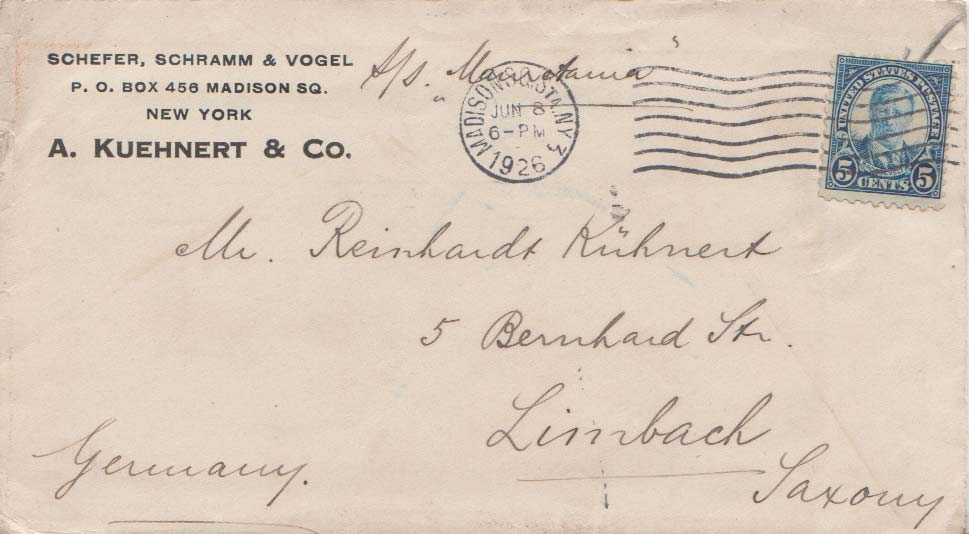 SCHEFER, SCHRAMM & VOGEL
P. O. BOX 456 MADISON SQ.
NEW YORK
A. KUEHNERT & CO.
S/S. "Mauretania"
MADISON SQ. STA. N.Y. 3
JUN 8
6-PM
1926
UNITED STATES POSTAGE
5 CENTS 5
Mr. Reinhardt Kühnert
5 Bernhard Str.
Limbach
Saxony
Germany.